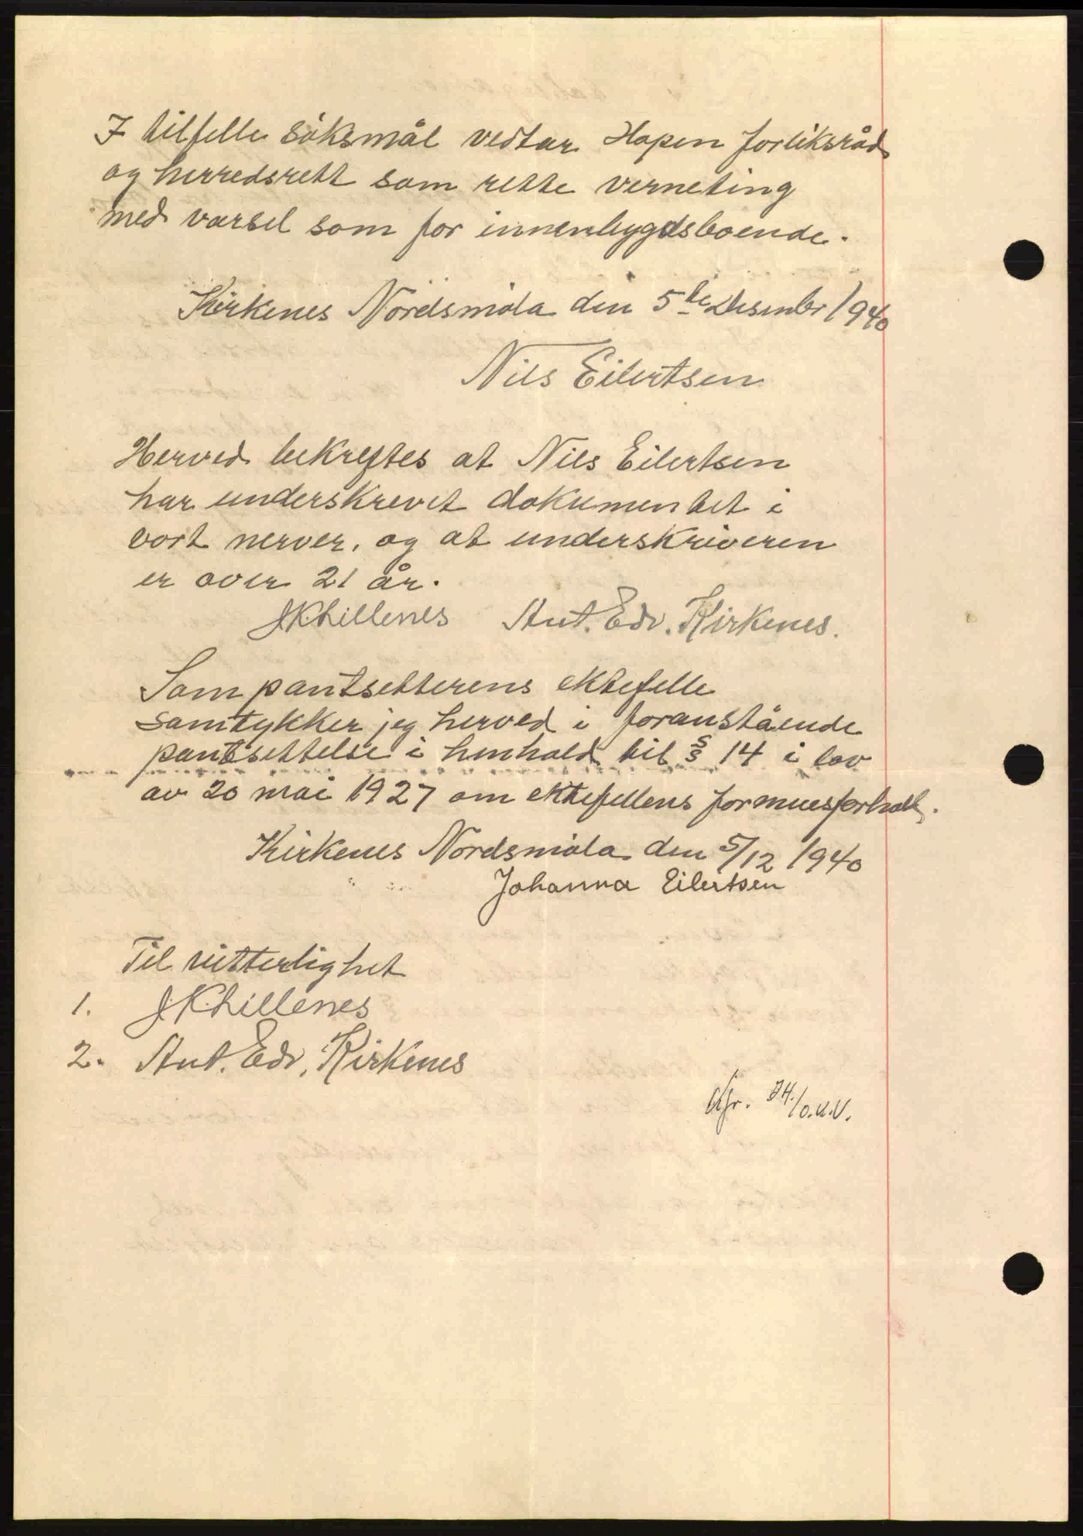 I tilfelle söksmål vedtar Hopen forliksråd
og herredsrett som rette verneting
med varsel som for innenbygdsboende.
Kirkenes Nordsmöla den 5te Desember 1940
Nils Eilertsen
Herved bekreftes at Nils Eilertsen
har underskrevet dokumentet i
vort nerver, og at underskriveren
er over 21 år.
JKLillenes Ant. Edv. Kirkenes.
Som pantsetterens ektefelle
samtykker jeg herved i foranstående
pantsettelse i henhold til § 14 i lov
av 20 mai 1927 om ektefellens formuesforhold.
Kirkenes Nordsmöla den 5/12 1940
Johanna Eilertsen
Til vitterlighet
1. JKLillenes
2. Ant. Edv. Kirkenes